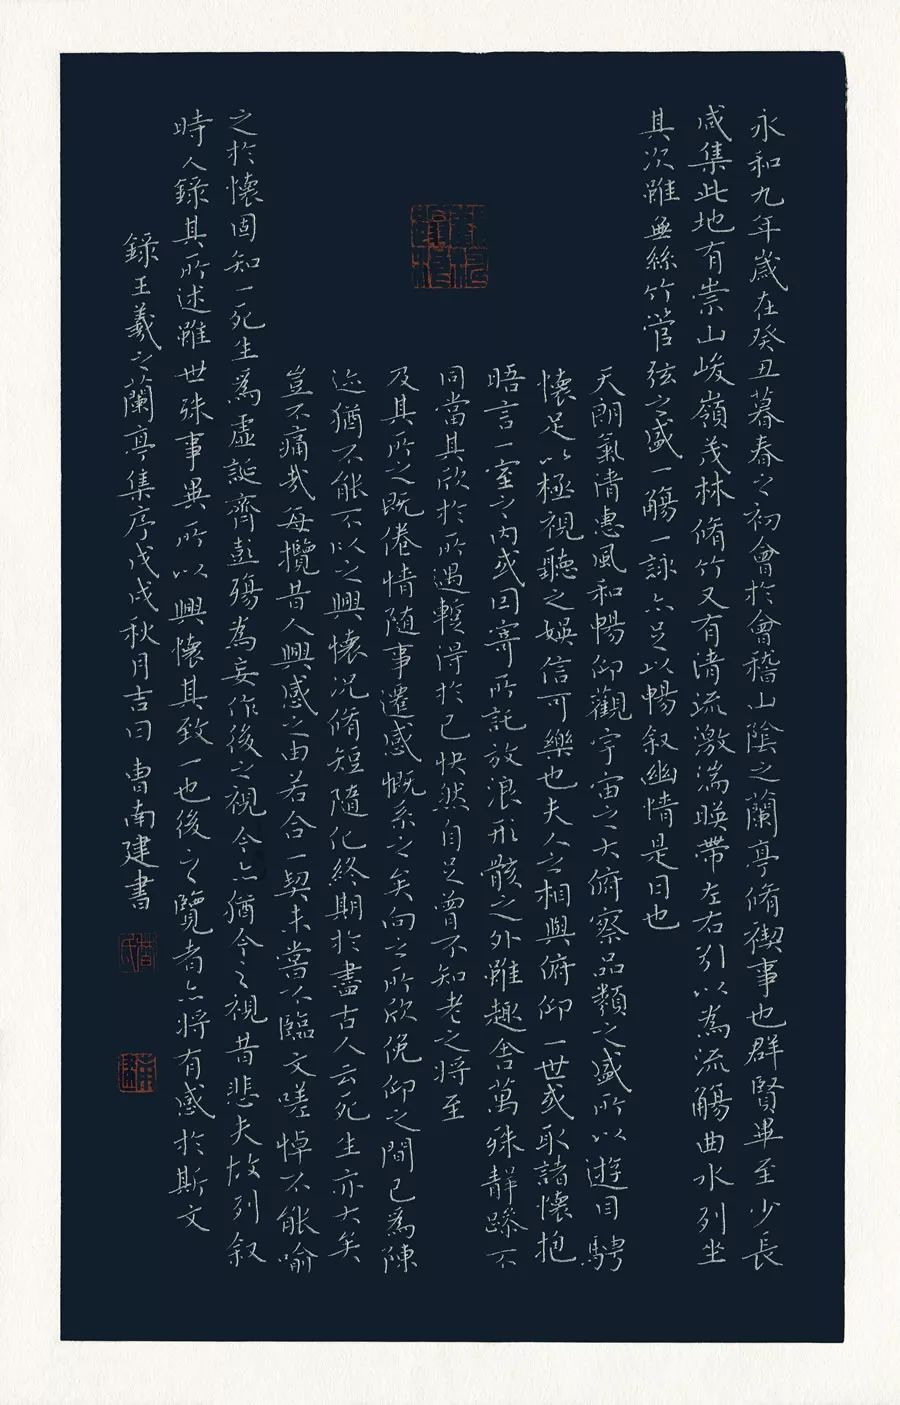 永和九年歲在癸丑暮春之初會於會稽山陰之蘭亭脩禊事也群賢畢至少長
咸集此地有崇山峻嶺茂林脩竹又有清流激湍暎帶左右引以為流觴曲水列坐
其次雖無絲竹管弦之盛一觴一詠亦足以暢叙幽情是日也
天朗氣清惠風和暢仰觀宇宙之大俯察品類之盛所以遊目騁
懷足以極視聽之娛信可樂也夫人之相與俯仰一世或取諸懷抱
晤言一室之內或因寄所託放浪形骸之外雖趣舍萬殊靜躁不
同當其欣於所遇暫得於己快然自足曾不知老之將至
及其所之既倦情隨事遷感慨系之矣向之所欣俛仰之間已為陳
迹猶不能不以之興懷況脩短隨化終期於盡古人云死生亦大矣
豈不痛哉每攬昔人興感之由若合一契未嘗不臨文嗟悼不能喻
之於懷固知一死生為虛誕齊彭殤為妄作後之視今亦猶今之視昔悲夫故列叙
時人錄其所述雖世殊事異所以興懷其致一也後之覽者亦將有感於斯文
錄王羲之蘭亭集序戊戌秋月吉日曹南建書